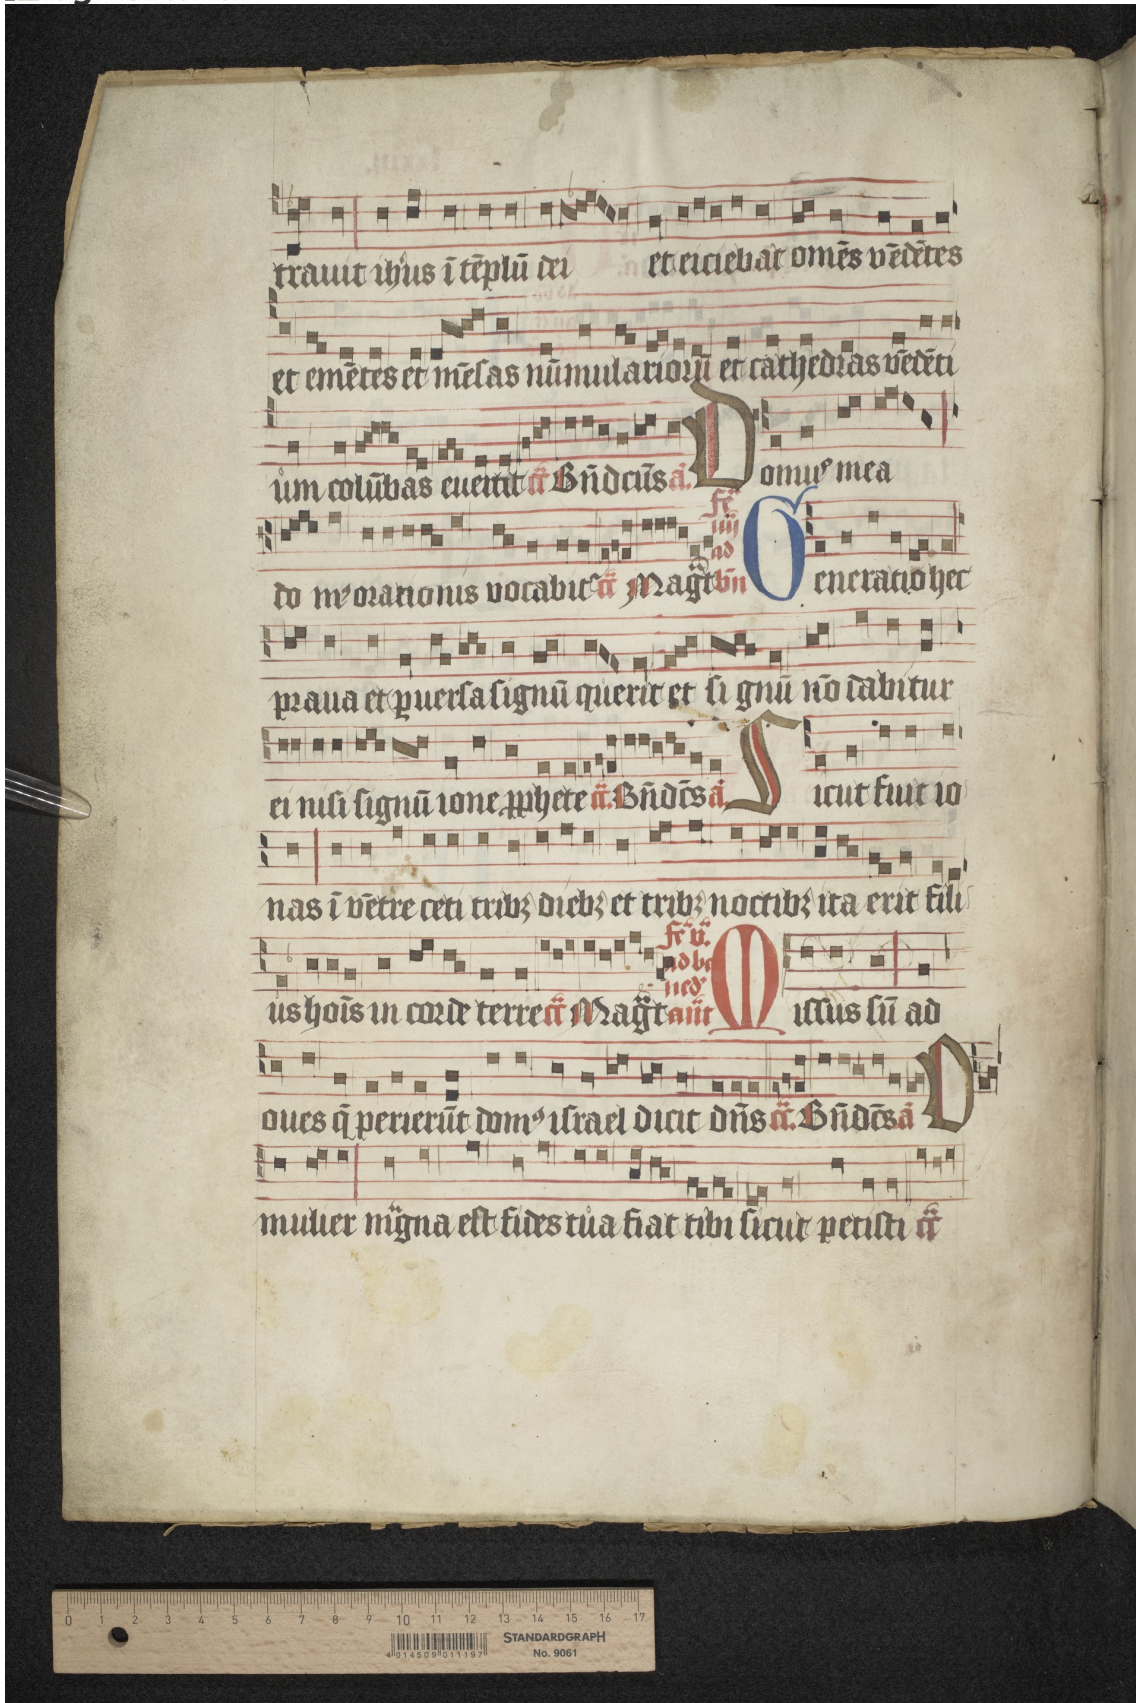 trauit ih'us ī tēplū dei et eiciebat omēs vēdētes
et emētes et mēsas nūmulariorū et cathedras vēdēti
um colūbas euertit Bn̄dcūs a. Domus mea
fe iiij ad bn̄
do m' orationis vocabit Mag̃t Generatio hec
praua et puersa signū querit et signū nō dabitur
ei nisi signū ione pphete Bn̄dc̄s a. Sicut fuit io
nas ī vētre ceti tribꝫ diebꝫ et tribꝫ noctibꝫ ita erit fili
fe v. ad bened' ant
us hoīs in corde terre Mag̃t Missus sū ad
oues q̄ perierūt domꝰ israel dicit dn̄s Bn̄dc̄s a O
mulier m̄gna est fides tua fiat tibi sicut petisti
0 1 2 3 4 5 6 7 8 9 10 11 12 13 14 15 16 17
STANDARDGRAPH
No. 9061
4 014509 011197